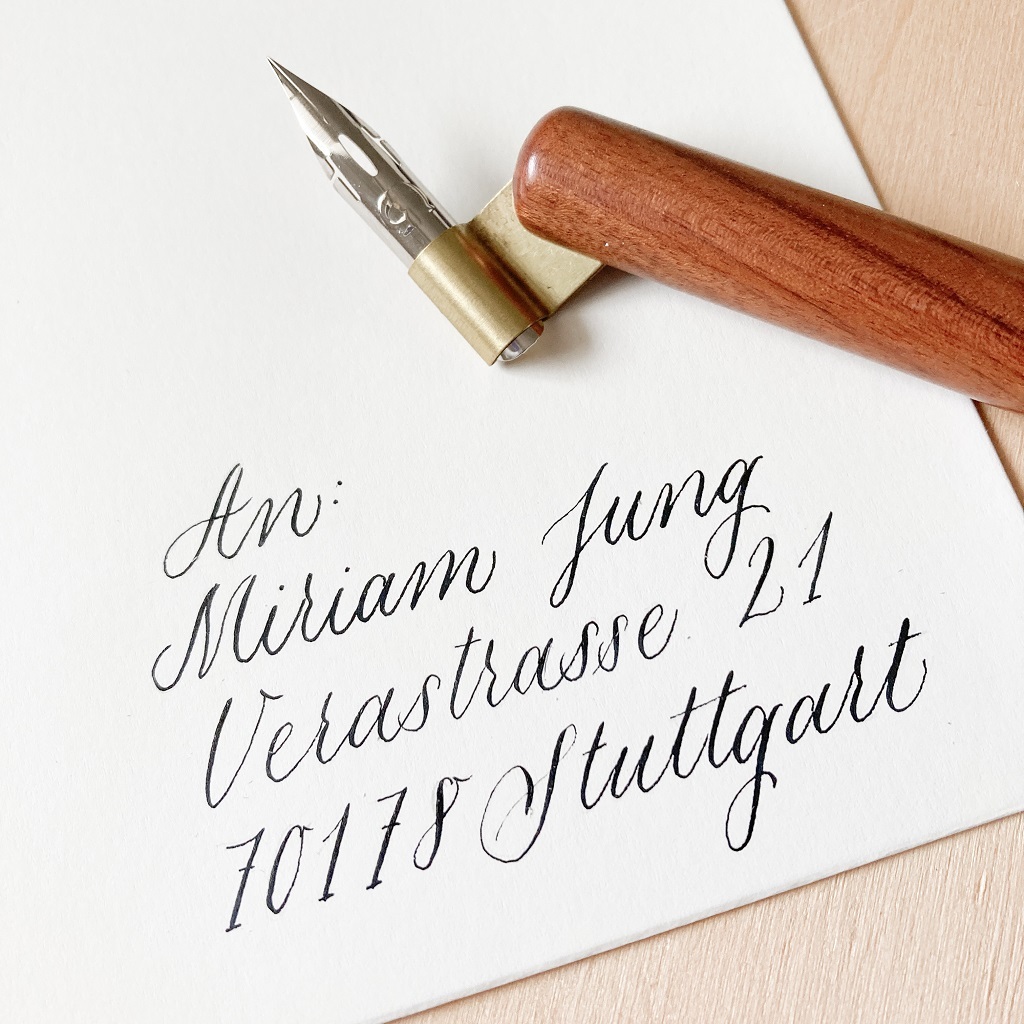 An:
Miriam Jung
Verastrasse 21
70178 Stuttgart